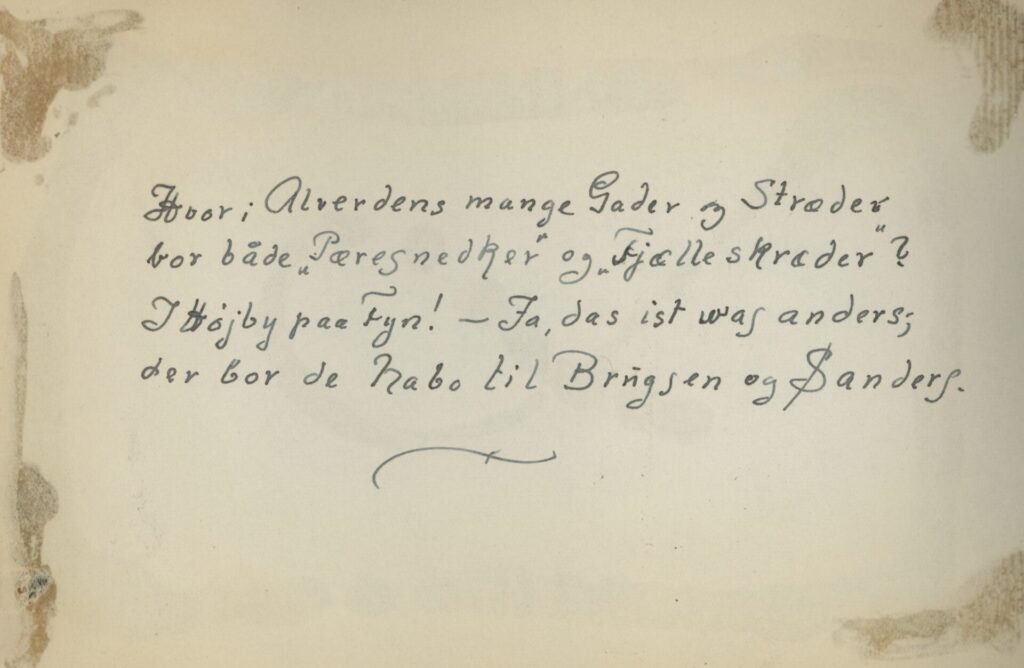 Hvor i Alverdens mange Gader og Stræder
bor både „Pæresnedker" og „Fjælleskræder"?
I Højby paa Fyn! — Ja, das ist was anders;
der bor de Nabo til Brugsen og Sanders.